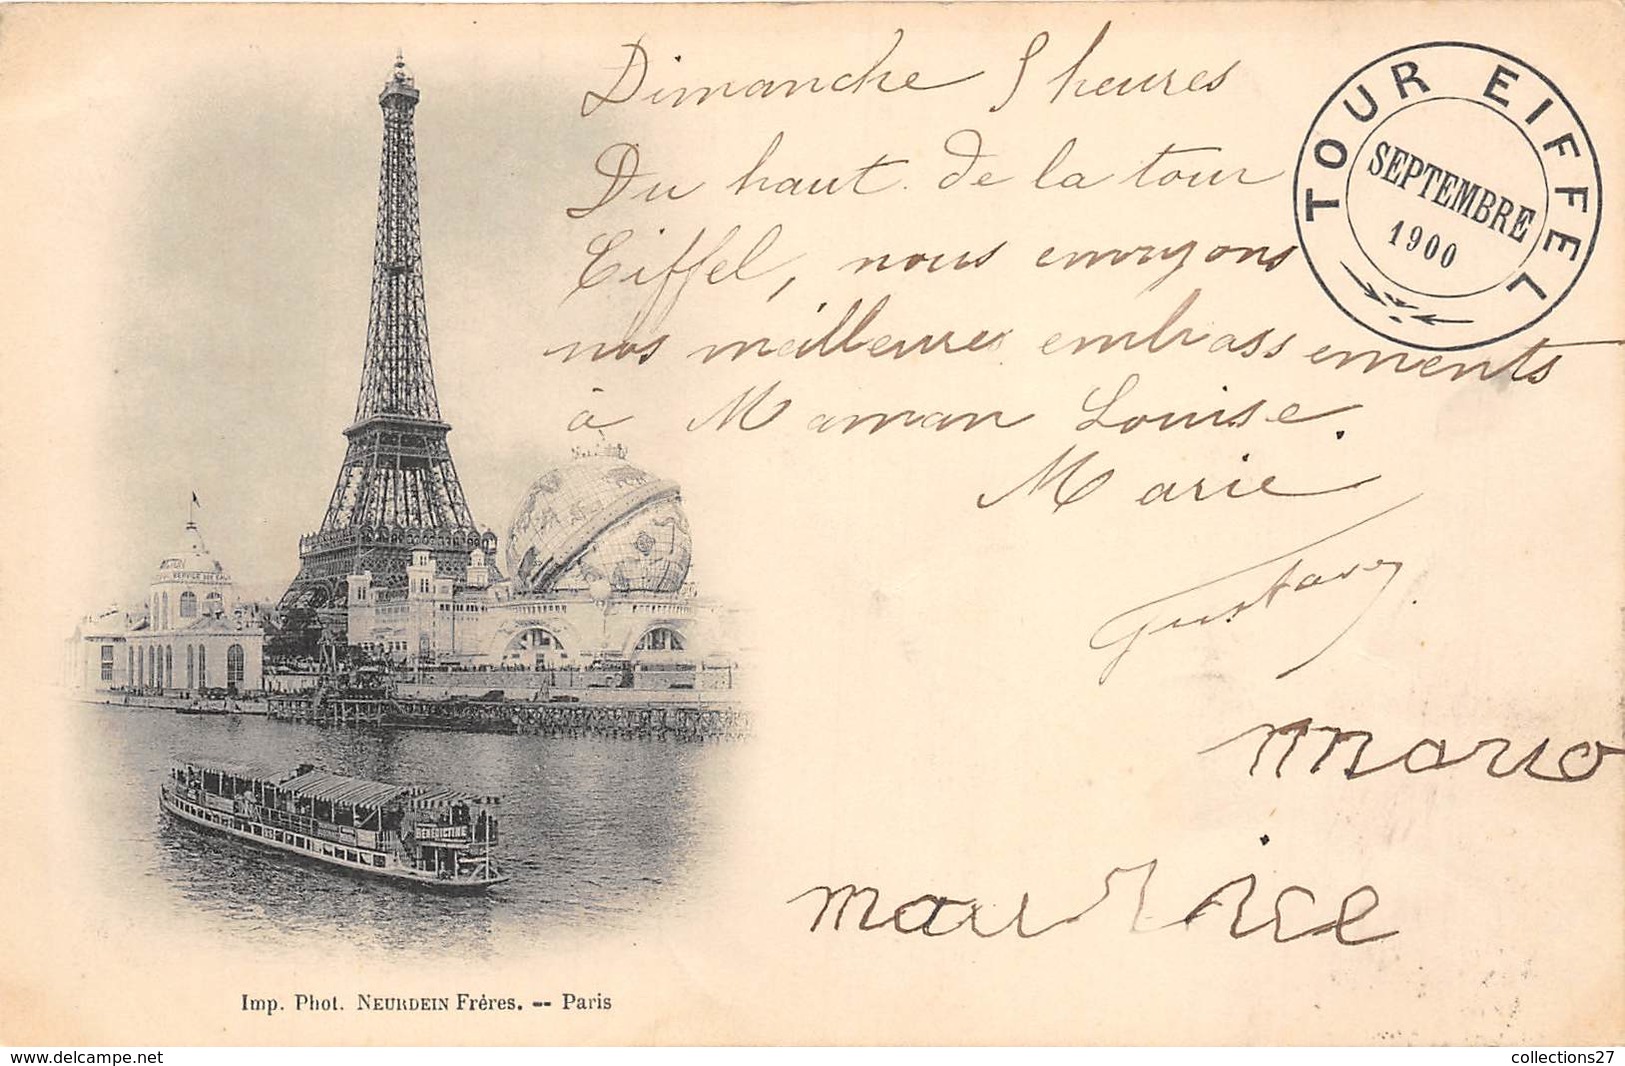 Dimanche 5 heures
Du haut de la tour
Eiffel, nous envoyons
nos meilleures embrassements
à Maman Louise.
Marie
Gustave
maurice
TOUR EIFFEL
SEPTEMBRE
1900
SERVICE DES EAUX
BENEDICTINE
Imp. Phot. NEURDEIN Fréres. -- Paris
www.delcampe.net
collections27